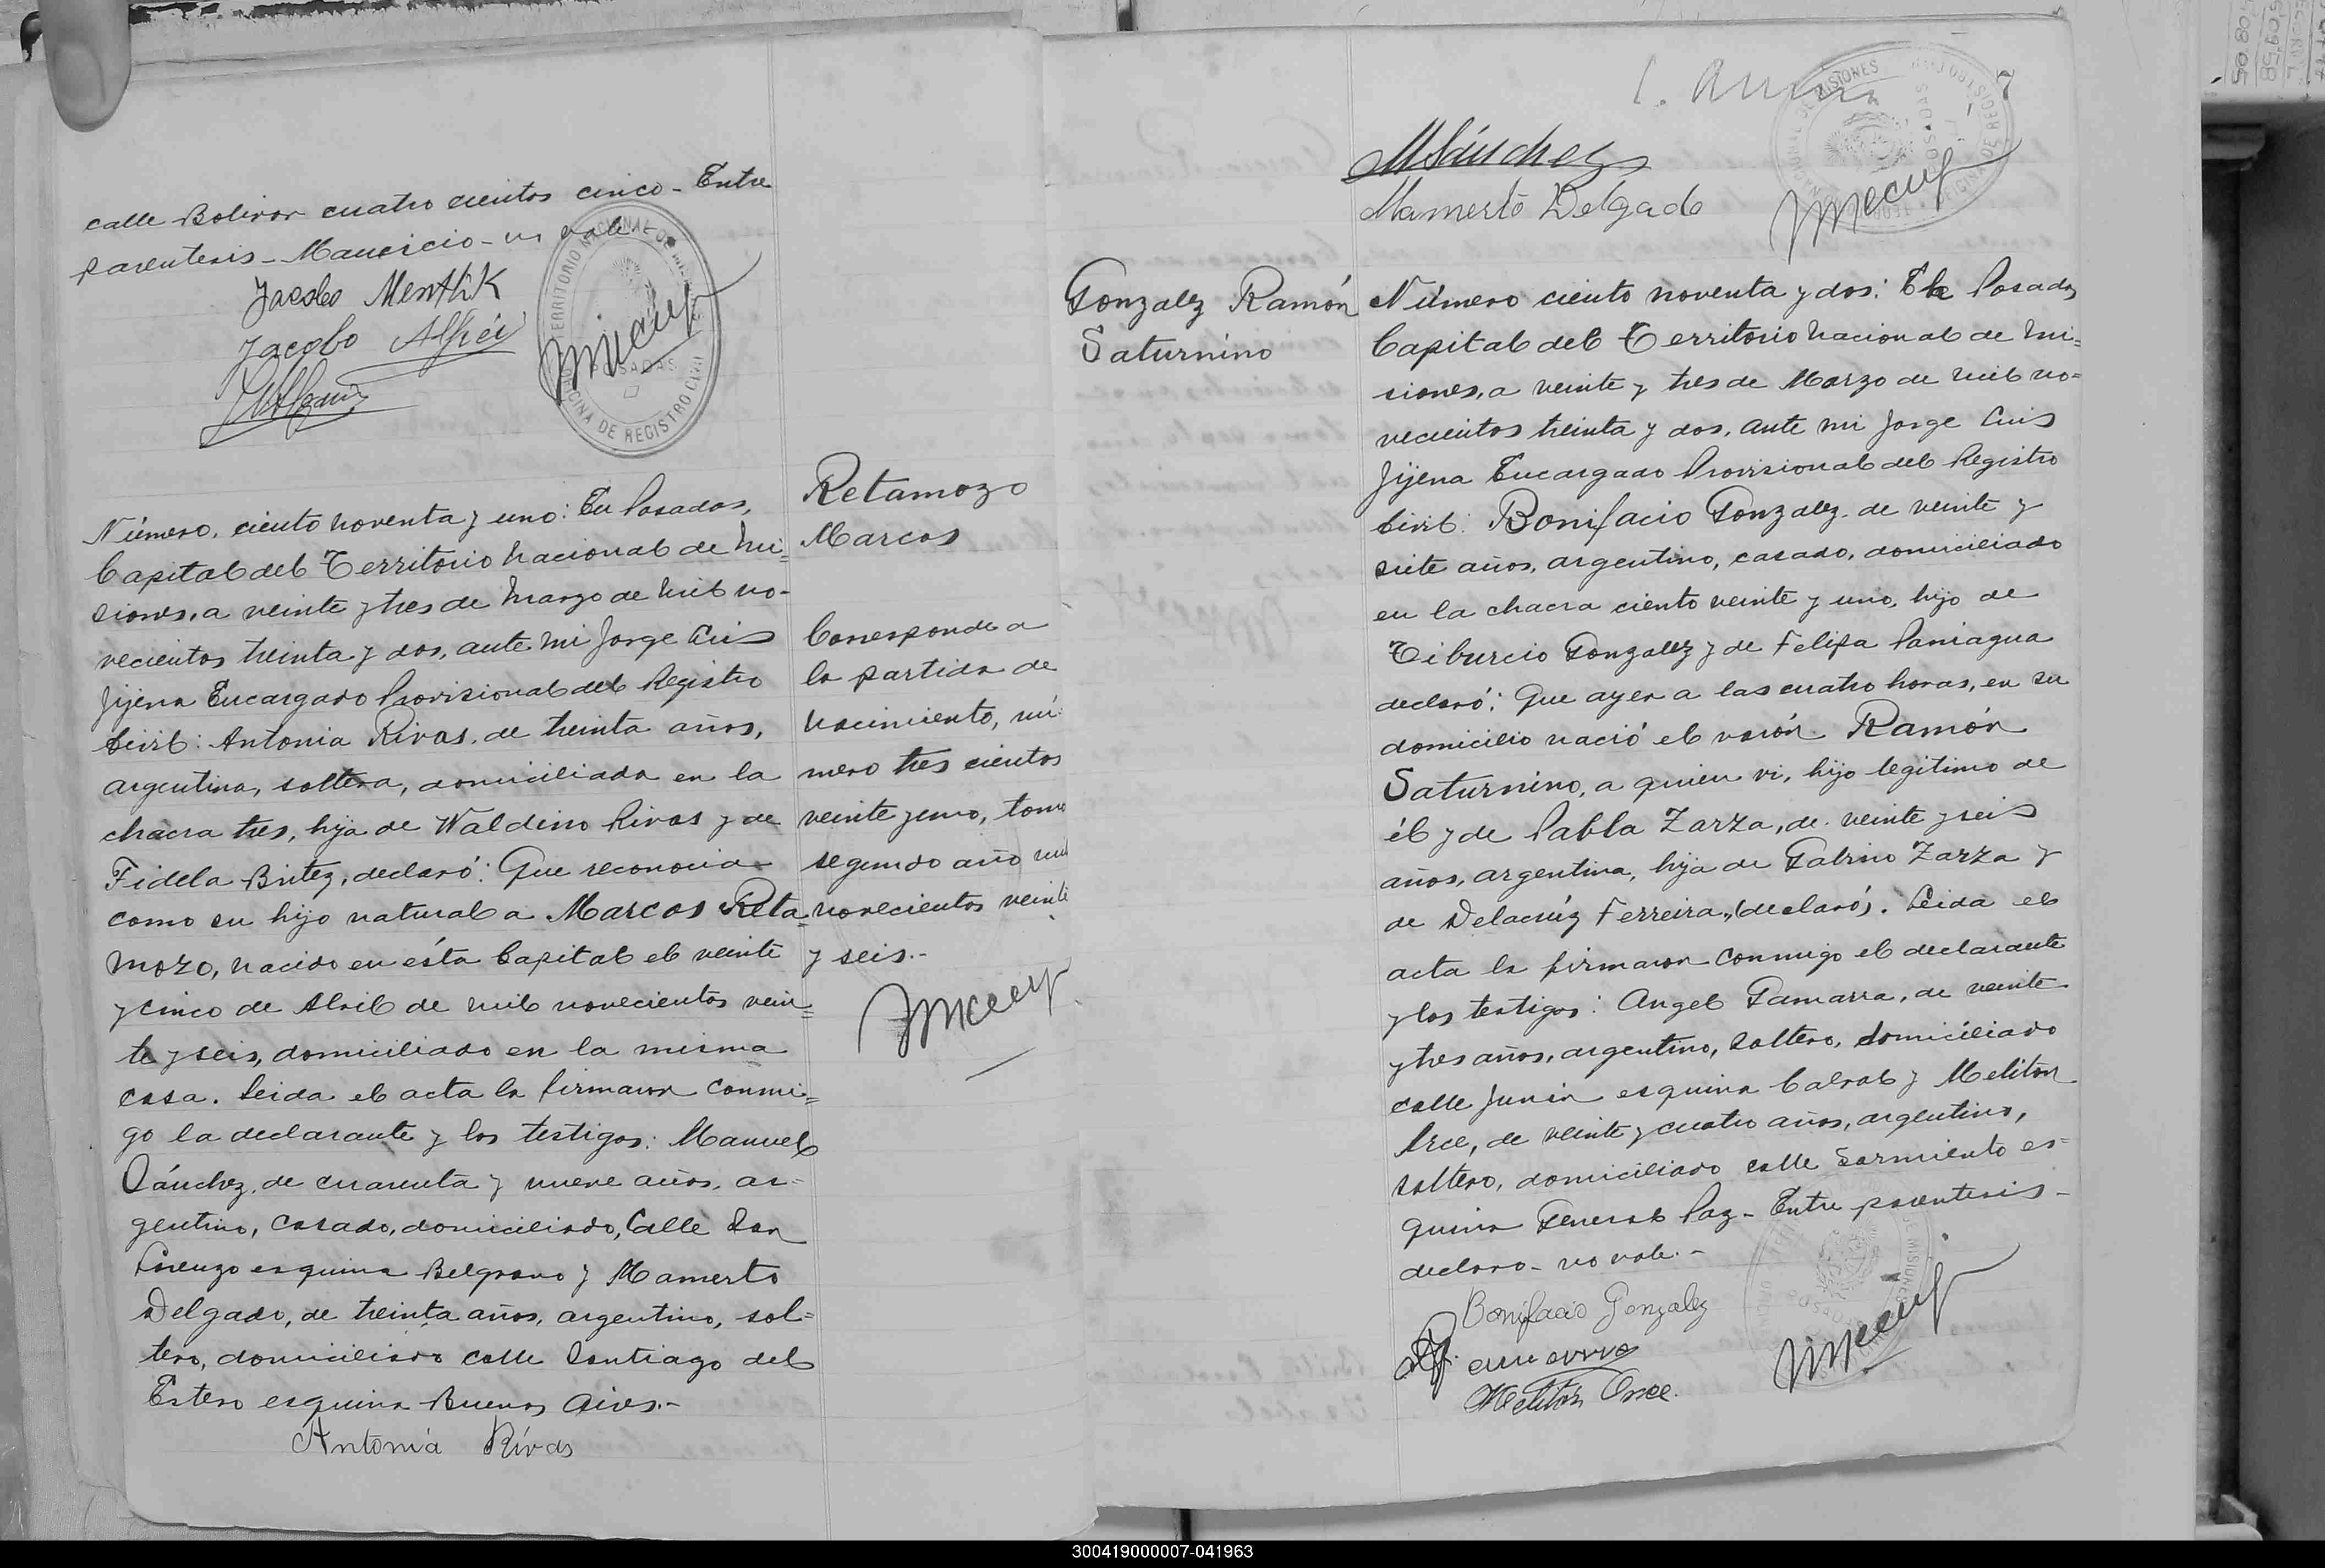 calle Bolivar cuatro cientos cinco - Entre
parentesis - Mauricio - no vale.
Jacobo Menthik
Jacobo
TERRITORIO NACIONAL DE MISIONES
POSADAS
OFICINA DE REGISTRO CIVIL
Número, ciento noventa y uno: En Posadas,
Capital del Territorio Nacional de Mi=
siones, a veinte y tres de Marzo de mil no-
vecientos treinta y dos, ante mi Jorge Luis
Jijena Encargado Provisional del Registro
Civil: Antonia Rivas, de treinta años,
argentina, soltera, domiciliada en la
chacra tres, hija de Waldino Rivas y de
Fidela Britez, declaró: Que reconocia
como su hijo natural a Marcos Reta=
mozo, nacido en ésta Capital el veinte
y cinco de Abril de mil novecientos vein=
te y seis, domiciliado en la misma
casa. Leida el acta la firmaron conmi=
go la declarante y los testigos: Manuel
Sánchez, de cuarenta y nueve años, ar-
gentino, casado, domiciliado, Calle San
Lorenzo esquina Belgrano y Mamerto
Delgado, de treinta años, argentino, sol=
tero, domiciliado calle Santiago del
Estero esquina Buenos Aires.-
Antonia Rivas
Retamozo
Marcos
Corresponde a
la partida de
nacimiento, nú-
mero tres cientos
veinte y uno, tomo
segundo año mil
novecientos veinte
y seis.-
7
MSánchez
Mamerto Delgado
Gonzalez Ramón
Saturnino
Número ciento noventa y dos: En Posadas
Capital del Territorio Nacional de Mi=
siones, a veinte y tres de Marzo de mil no=
vecientos treinta y dos, ante mi Jorge Luis
Jijena Encargado Provisional del Registro
Civil: Bonifacio Gonzalez, de veinte y
siete años, argentino, casado, domiciliado
en la chacra ciento veinte y uno, hijo de
Tiburcio Gonzalez y de Felipa Paniagua
declaró: Que ayer a las cuatro horas, en su
domicilio nació el varón Ramón
Saturnino, a quien vi, hijo legitimo de
él y de Pabla Zarza, de veinte y seis
años, argentina, hija de Gabino Zarza y
de Delacrúz Ferreira, (declaró). Leida el
acta la firmaron conmigo el declarante
y los testigos: Angel Gamarra, de veinte
y tres años, argentino, soltero, domiciliado
calle Junín esquina Cabral y Melitón
Arce, de veinte y cuatro años, argentino,
soltero, domiciliado calle Sarmiento es=
quina General Paz - Entre parentesis -
declaro - no vale.-
Bonifacio Gonzalez
Meliton Arce.
300419000007-041963